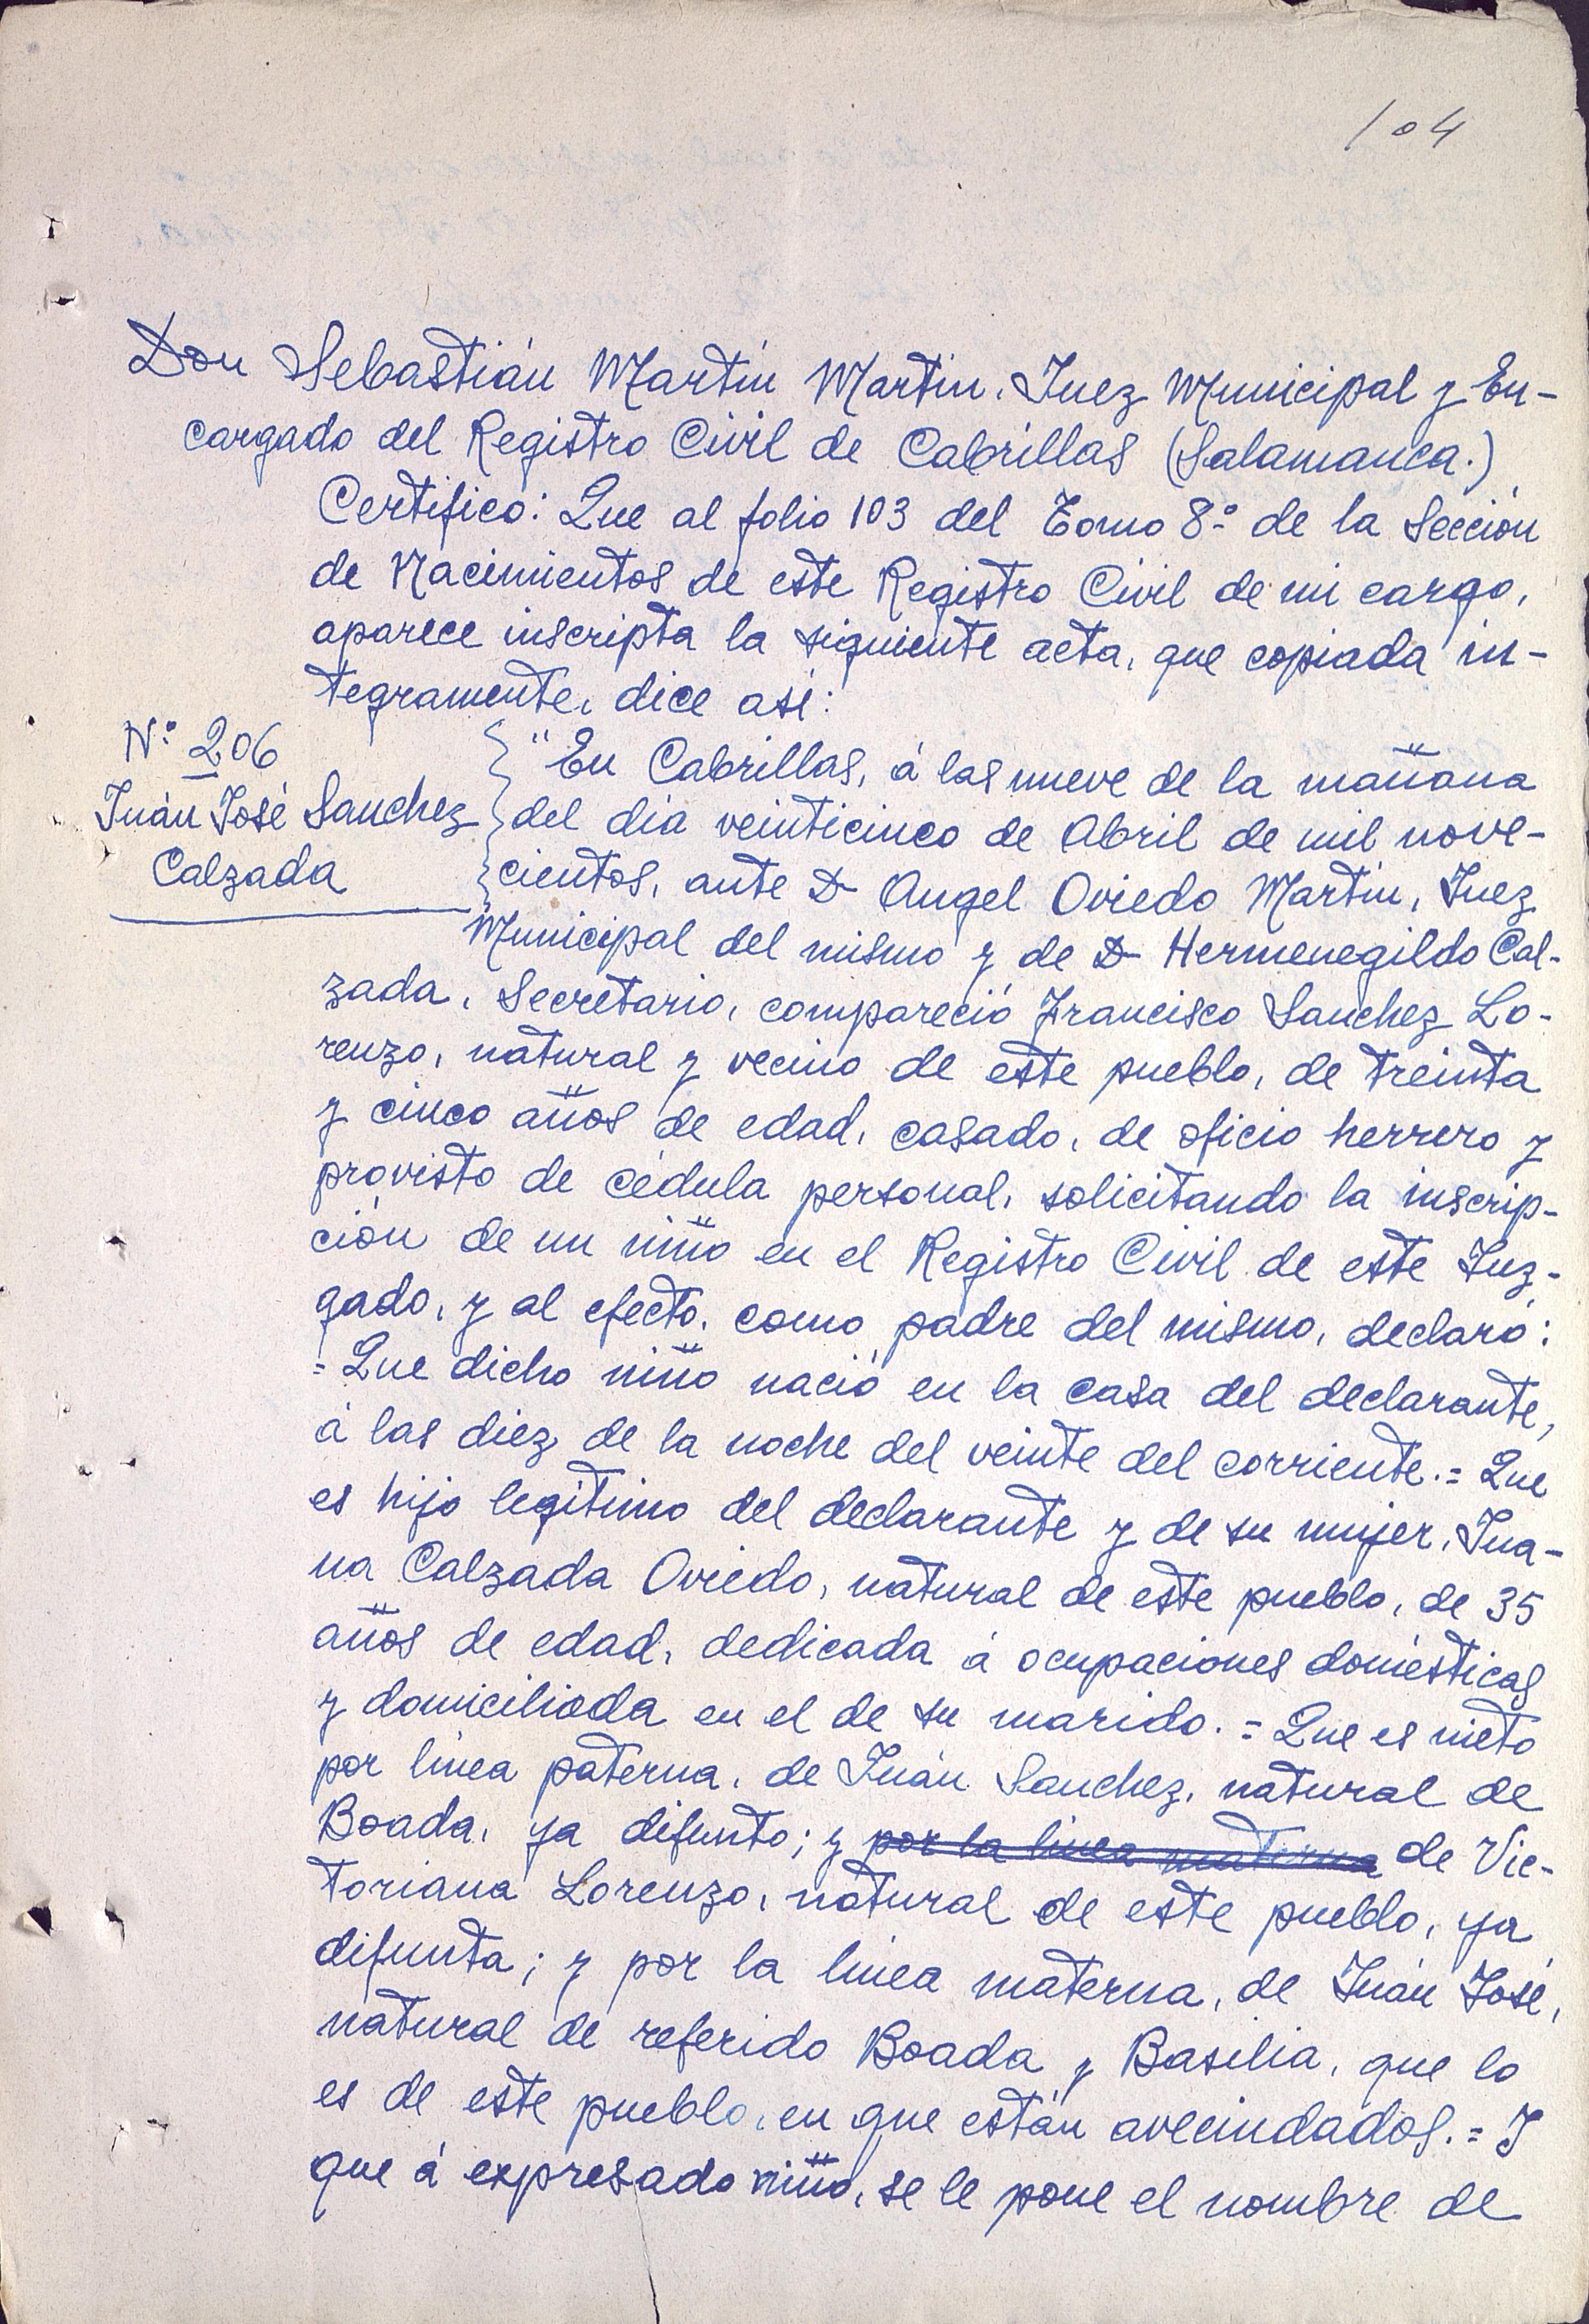 104
Don Sebastián Martín Martín, Juez Municipal y En-
cargado del Registro Civil de Cabrillas (Salamanca.)
Certifico: Que al folio 103 del Tomo 8º de la Sección
de Nacimientos de este Registro Civil de mi cargo,
aparece inscripta la siguiente acta, que copiada in-
tegramente, dice así:
Nº 206
Juán José Sanchez
Calzada
"En Cabrillas, á las nueve de la mañana
del día veinticinco de Abril de mil nove-
cientos, ante D. Angel Oviedo Martín, Juez
Municipal del mismo y de D. Hermenegildo Cal-
zada, Secretario, compareció Francisco Sanchez Lo-
renzo, natural y vecino de este pueblo, de treinta
y cinco años de edad, casado, de oficio herrero y
provisto de cédula personal, solicitando la inscrip-
ción de un niño en el Registro Civil de este Juz-
gado, y al efecto, como padre del mismo, declaró:
= Que dicho niño nació en la casa del declarante,
á las diez de la noche del veinte del corriente.= Que
es hijo legítimo del declarante y de su mujer, Jua-
na Calzada Oviedo, natural de este pueblo, de 35
años de edad, dedicada á ocupaciones domésticas
y domiciliada en el de su marido. = Que es nieto
por línea paterna, de Juán Sanchez, natural de
Boada, ya difunto; y por la línea materna de Vic-
toriana Lorenzo, natural de este pueblo, ya
difunta; y por la línea materna, de Juán José,
natural de referido Boada y Basilia, que lo
es de este pueblo, en que están avecindados. = Y
que á expresado niño, se le pone el nombre de